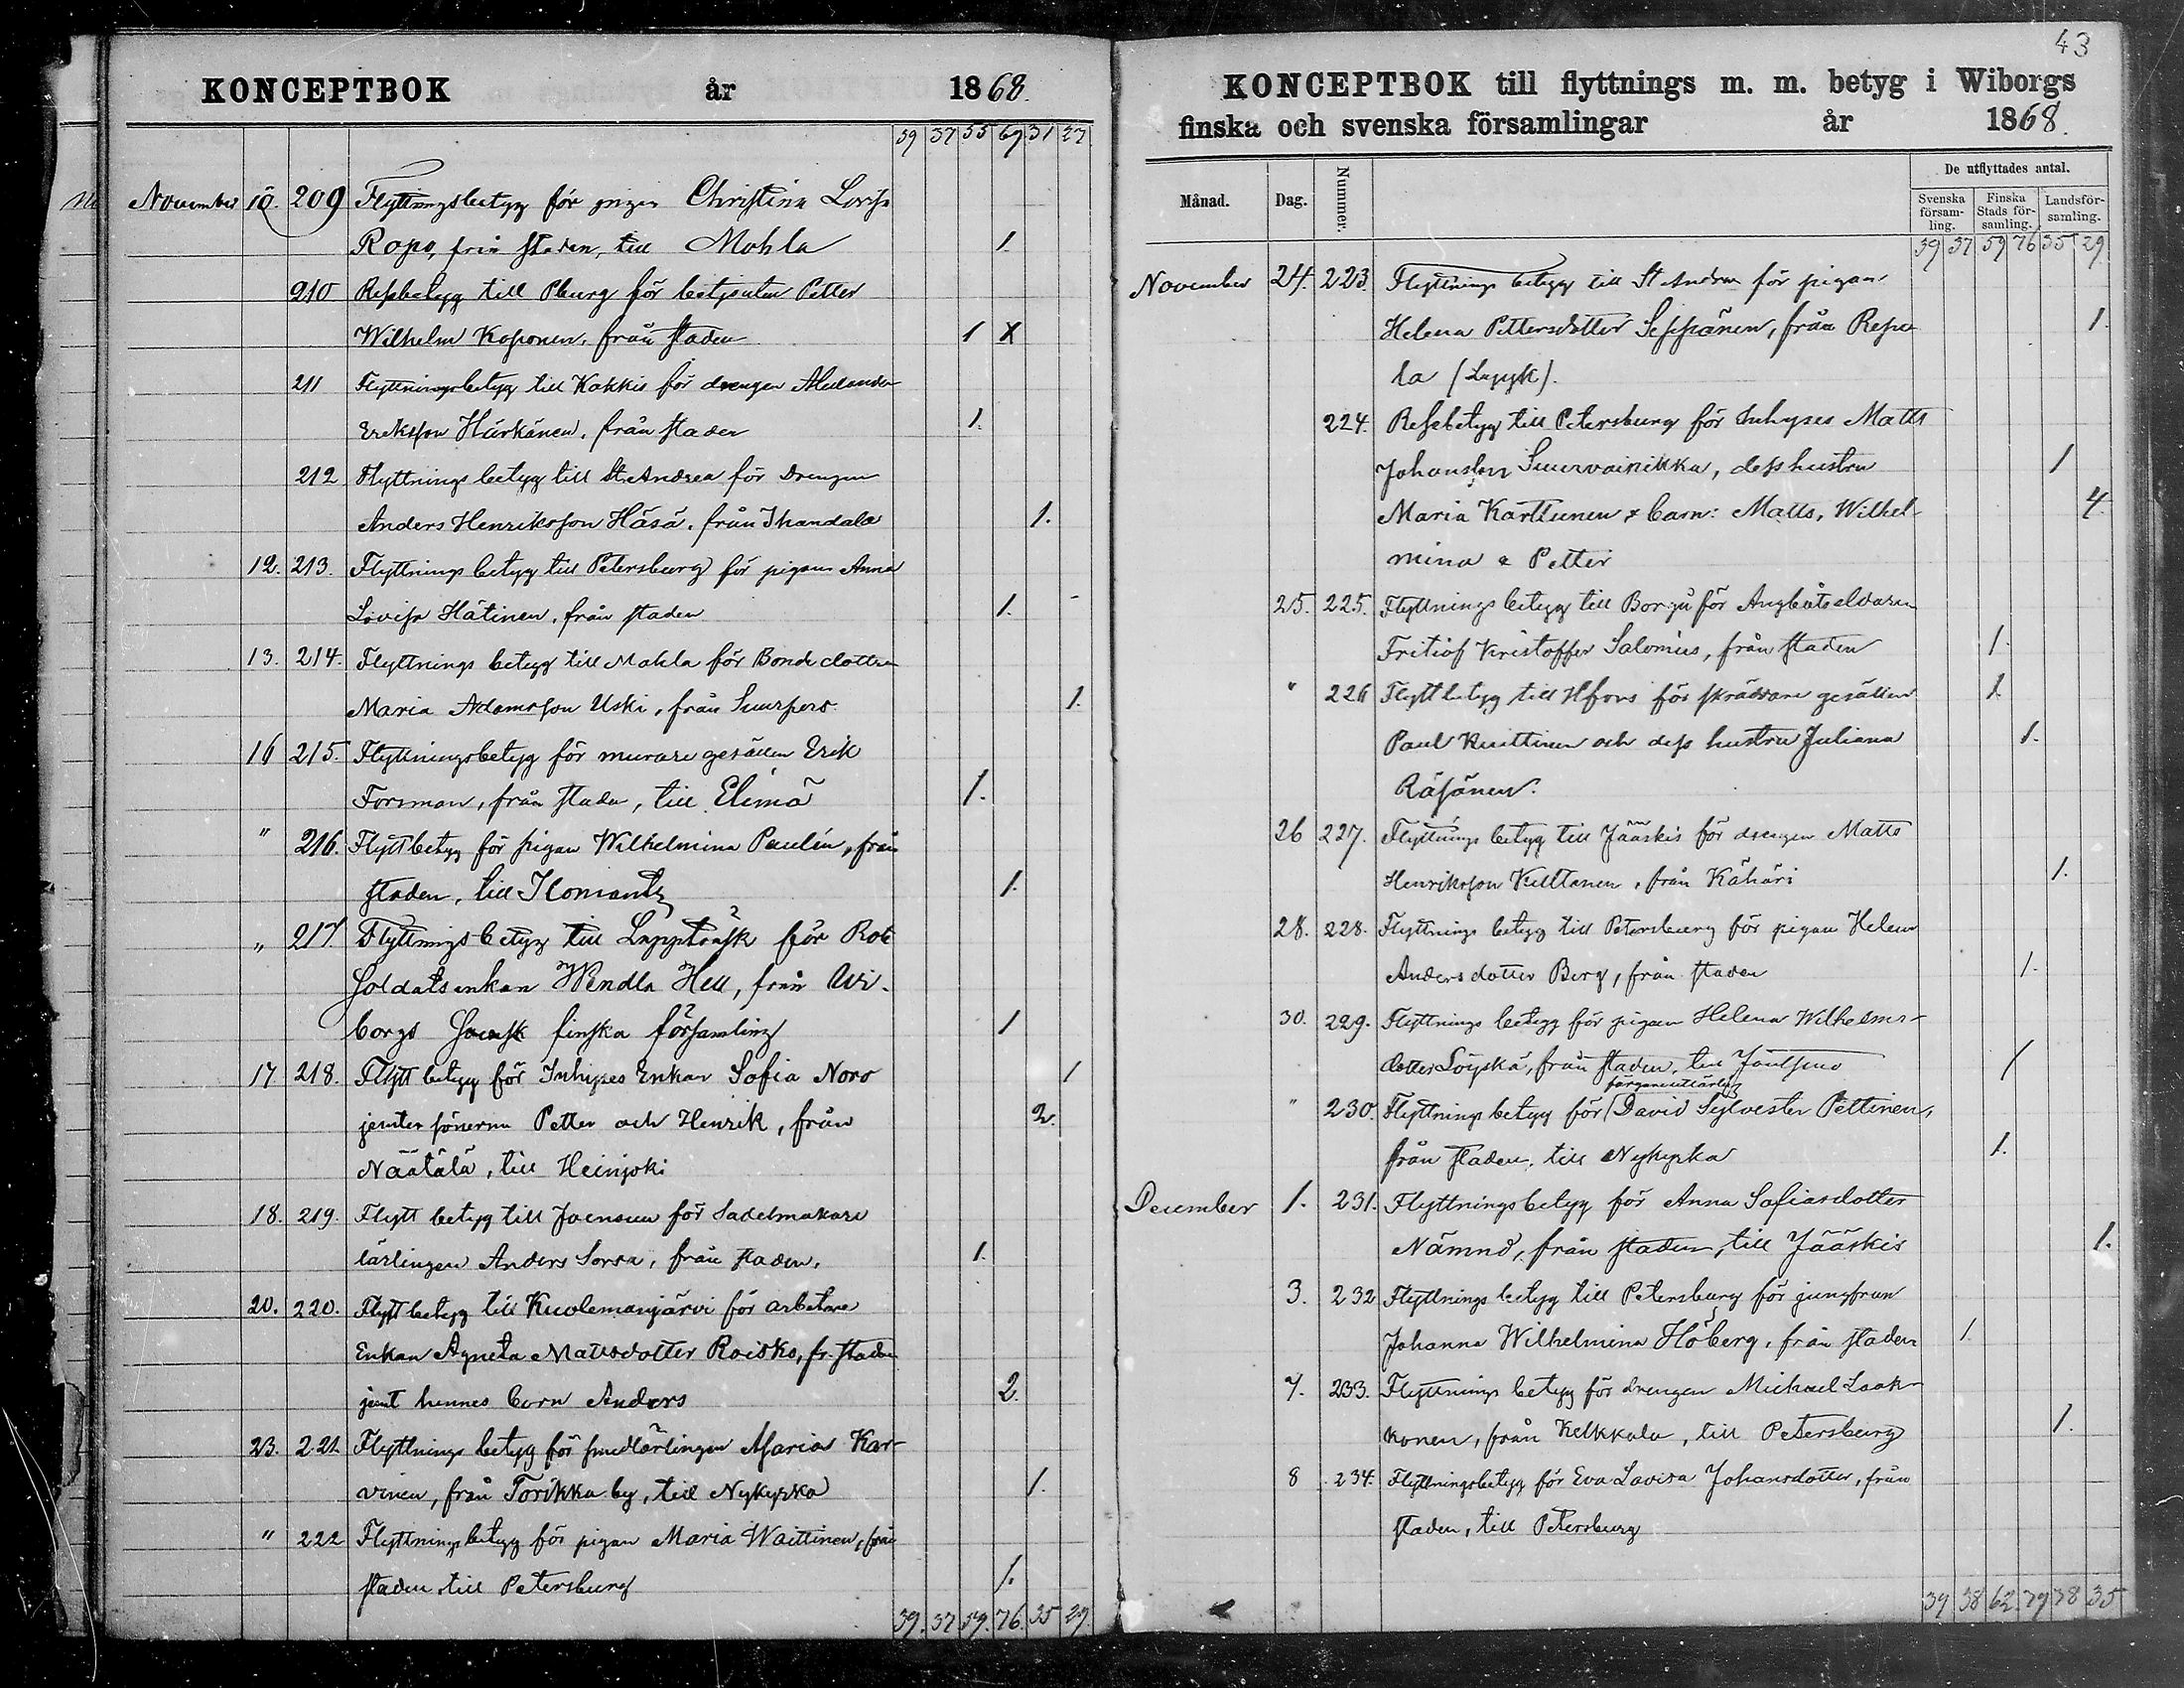 KONCEPTBOK år 1868.
39 37 55 69 31 27
November 10. 209 Flyttningsbetyg för pigan Christina Lovisa
Ropo, från staden, till Mohla 1
210 Resebetyg till Pburg för betjenten Petter
Wilhelm Koponen, från staden 1 X
211 Flyttningsbetyg till Kakkis för drengen Alexander
Eriksson Härkänen, från staden 1.
212 Flyttnings betyg till St Andrea för Drengen
Anders Henriksson Häsä, från Ihandala 1.
12. 213. Flyttnings betyg till Petersburg för pigan Anna
Lovisa Hätinen, från staden 1.
13. 214. Flyttnings betyg till Mohla för Bonde dottren
Maria Adamsson Uski, från Suurpero 1.
16 215. Flyttningsbetyg för murare gesällen Erik
Forsman, från staden, till Elimä 1.
" 216. Flyttbetyg för pigan Wilhelmina Paulin, från
staden, till Ilomants 1.
" 217 Flyttnings betyg till Lappträsk för Rote
Soldatsenkan Wendla Hell, från Wi-
borgs Svensk finska församling 1
17 218. Flytt betyg för Inhyses Enkan Sofia Noro 1
jemte sönerna Petter och Henrik, från 2.
Näätälä, till Heinjoki
18. 219. Flytt betyg till Joensuu för Sadelmakare
lärlingen Anders Sorsa, från staden. 1.
20. 220. Flytt betyg till Kuolemanjärvi för arbetare
Enkan Agneta Mattsdotter Roisko, fr. staden
jemt hennes barn Anders 2.
23. 221 Flyttnings betyg för smedlärlingen Maria Kar-
vinen, från Torikka by, till Nykyrka 1.
" 222 Flyttnings betyg för pigan Maria Waittinen, från
staden till Petersburg 1.
39. 37. 59. 76. 35 29.
43
KONCEPTBOK till flyttnings m. m. betyg i Wiborgs
finska och svenska församlingar år 1868.
Månad. Dag. Nummer. De utflyttades antal.
Svenska församling. Finska Stads församling. Landsförsamling.
39 37 59 76 35 29.
November 24. 223. Flyttnings betyg till St Andrea för pigan
Helena Pettersdotter Seppänen, från Repo- 1.
la
224. Resebetyg till Petersburg för Inhyses Matts
Johansson Suurvainikka, dess hustru 1
Maria Karttunen & barn: Matts, Wilhel- 4.
mina & Petter
25. 225. Flyttnings betyg till Borgå för Angbåtseldaren
Fritiof Kristoffer Salonius, från staden 1.
" 226 Flyttbetyg till Hfors för skräddare gesällen 1.
Paul Kuittinen och dess hustru Juliana 1.
Räsänen.
26 227. Flyttnings betyg till Jääskis för drengen Matts
Henriksson Kulttanen, från Kähäri 1.
28. 228. Flyttnings betyg till Petersburg för pigan Helena
Andersdotter Berg, från staden 1.
30. 229. Flyttnings betyg för pigan Helena Wilhelms-
dotter Löyskä, från staden, till 1
" 230. Flyttnings betyg för David Sylvester Pettinen,
från staden, till Nykyrka 1.
December 1. 231. Flyttnings betyg för Anna Sofiasdotter
Nämnd, från staden, till Jääskis 1.
3. 232 Flyttnings betyg till Petersburg för jungfrun
Johanna Wilhelmina Höberg, från staden 1.
7. 233. Flyttnings betyg för drengen Michael Laak-
konen, från Kelkkala, till Petersburg 1.
8 234. Flyttningsbetyg för Eva Lovisa Johansdotter, från
staden, till Petersburg
39 38 62 79 38 35